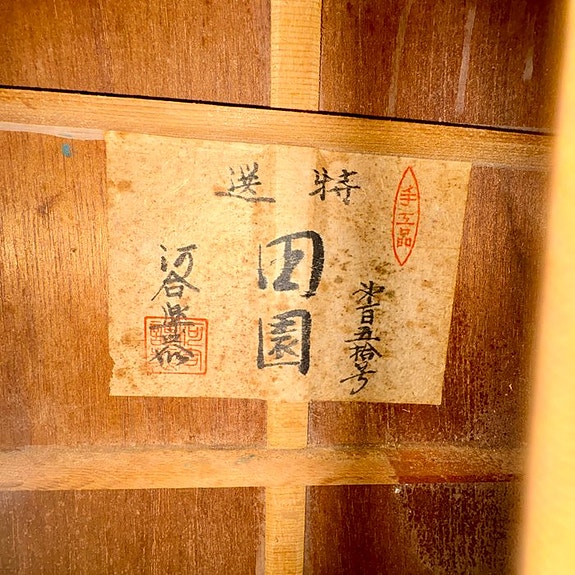 特選
手工品
第百五拾号
田園
河合